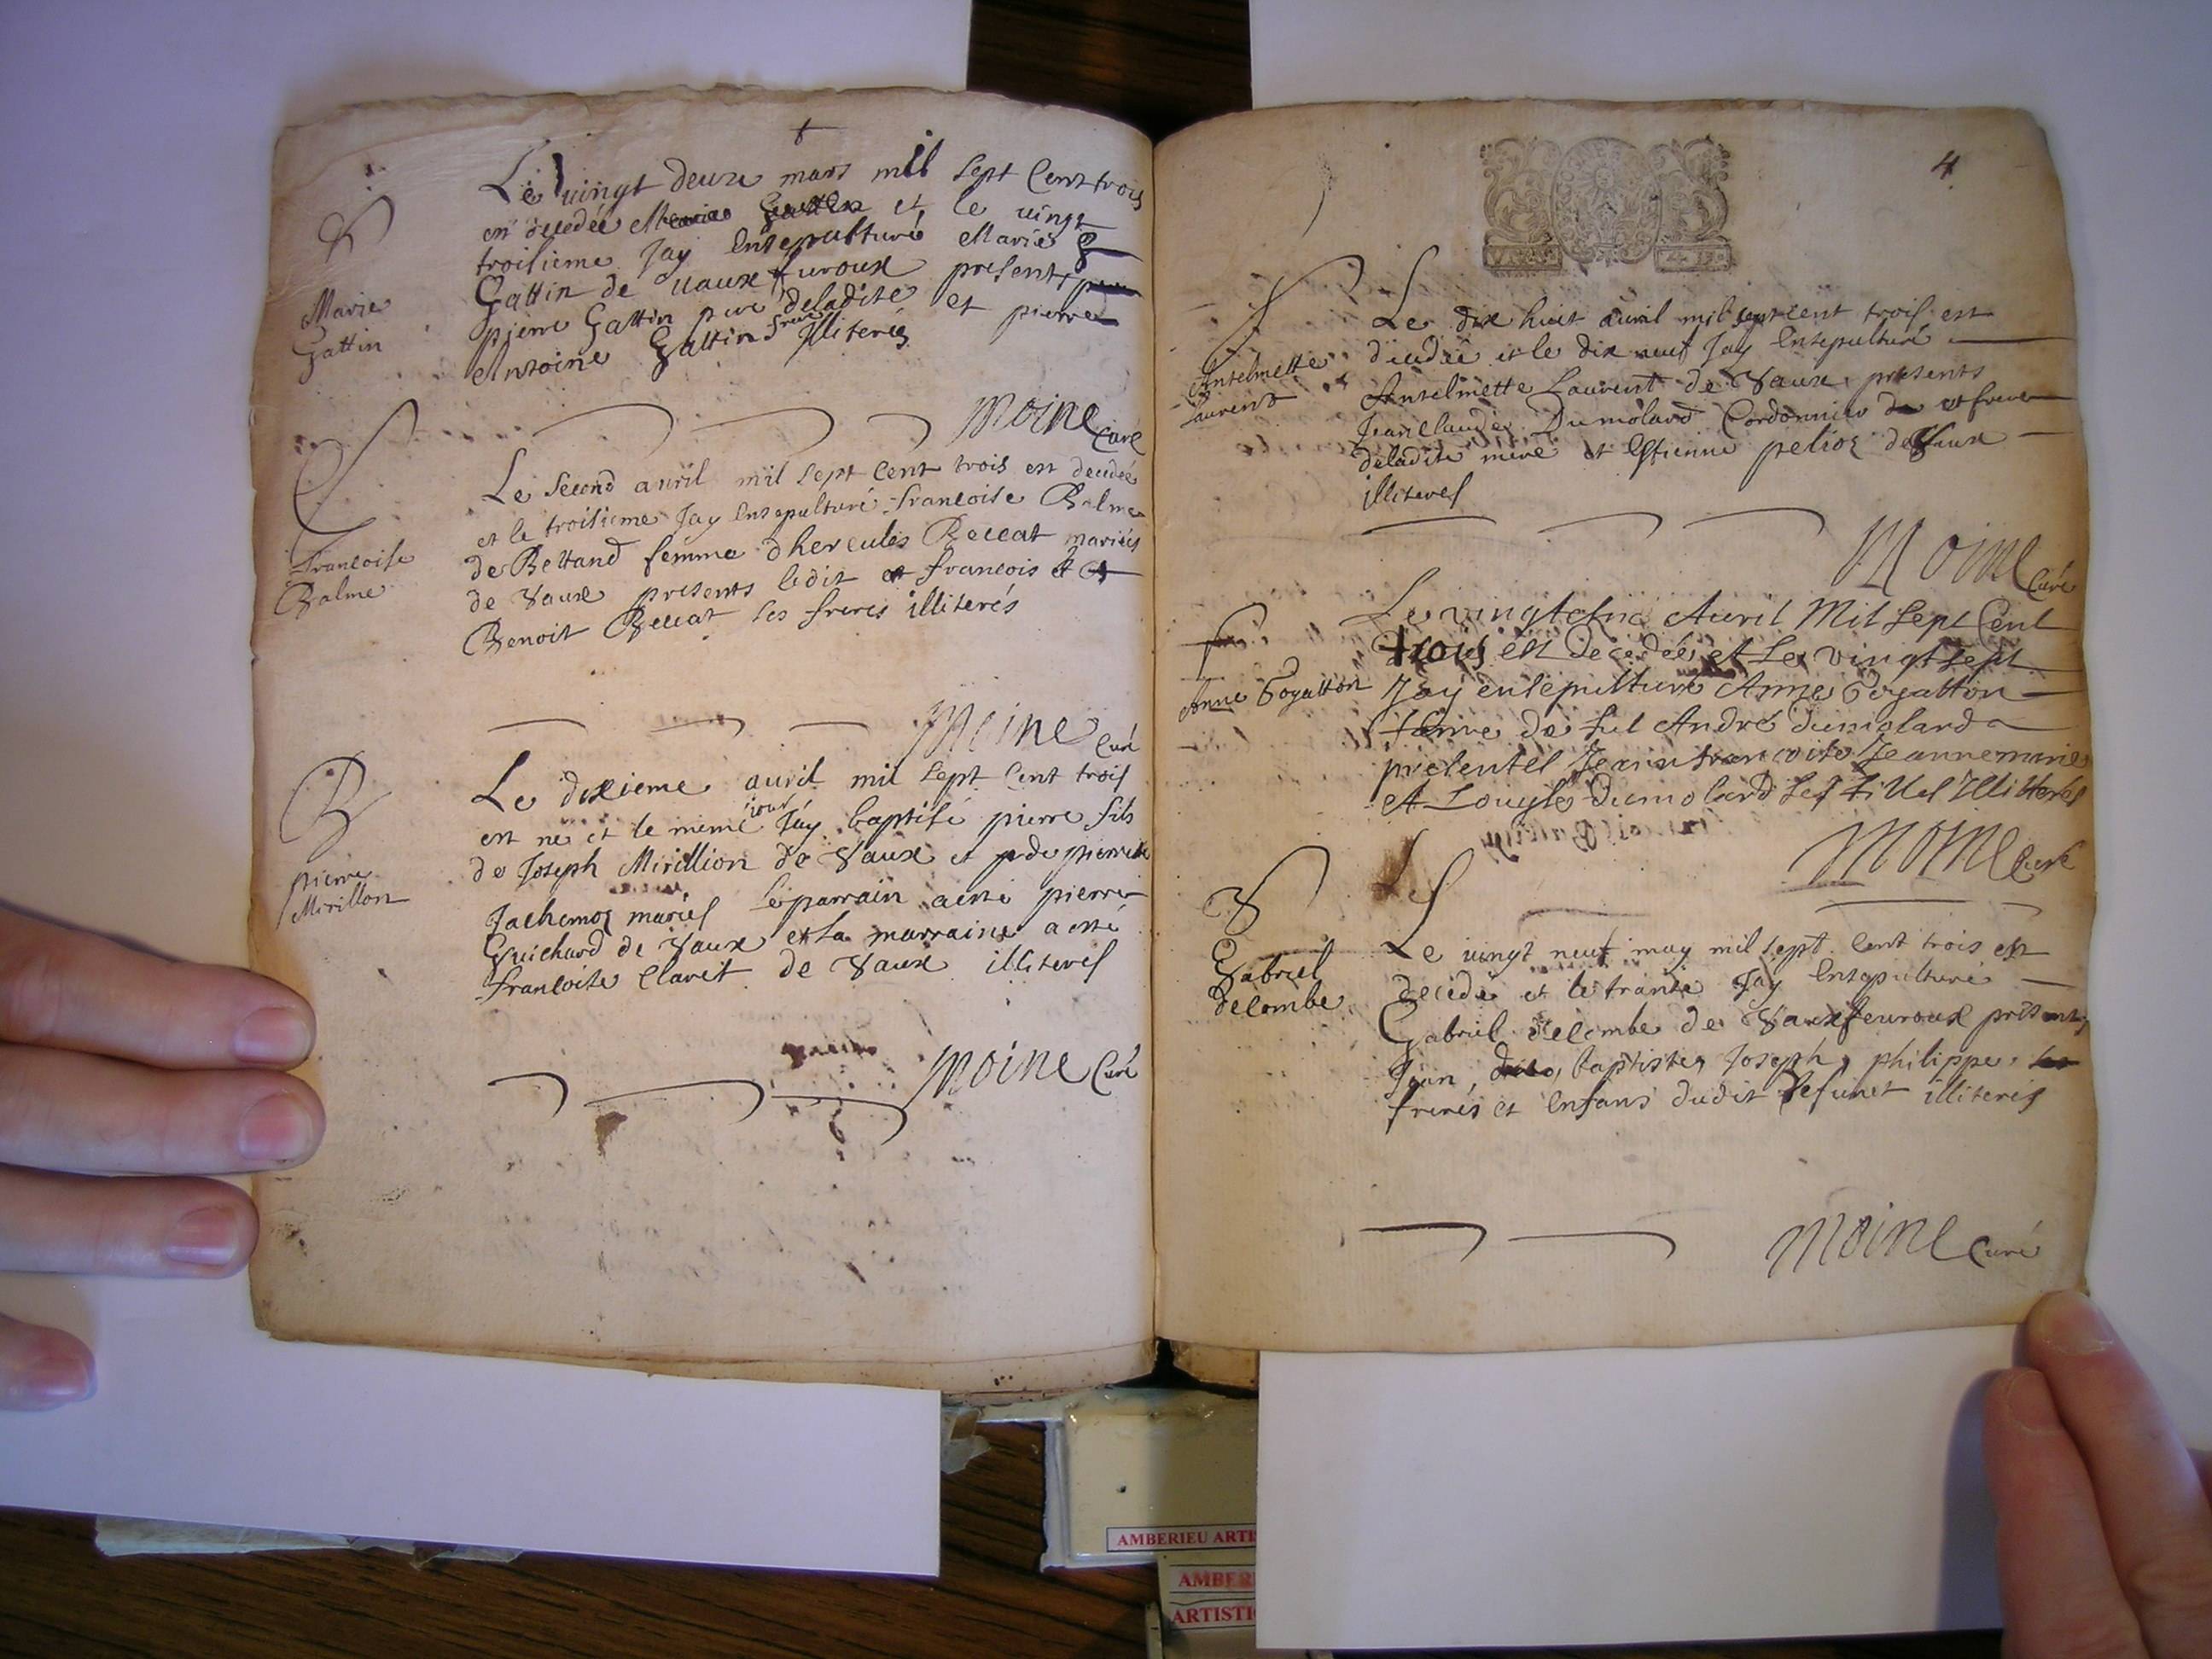 Le vingt deux mars mil sept Cent trois
est decedée Marie Gattin et le vingt
troisieme Jay Ensepulturé Marie G
Gattin de vaux furoux presents
pierre Gattin pere deladite et pierre
Antoine Gattin frere Illiterés
Moine Curé
S
Marie
Gattin
Le Second avril mil sept Cent trois est decedée
et le troisieme Jay Ensepulturé francoise Balme
de Bettand femme dhercules Beccat mariés
de Vaux presents ledit et francois et
Benoit Beccat ses freres illiterés
Moine Curé
S
francoise
Balme
Le dixieme avril mil sept Cent trois
est ne et le meme jour Jay baptisé pierre fils
de Joseph Mirillion de Vaux et de pierrette
Jachemoz mariés le parrain a esté pierre
Guichard de Vaux et la marraine a esté
francoise Claret de Vaux illiteres
Moine Curé
B
pierre
Mirillon
4
Le dix huit avril mil sept cent trois est
decedée et le dix neuf Jay Ensepulturé
Anselmette Laurent de Vaux presents
Jean claude Dumolard Cordonnier et frere
deladite mere et Estienne pelioz de Vaux
illiteres
Moine Curé
S
Anselmette
Laurent
Le vingtcinc Avril Mil Sept Cent
trois est decedée et Le vingt sept
Jay ensepulturé Anne Fogatton
femme de André dumolard
presentes Jeanne marie
et dumolard ses filles Illiterés
Moine Curé
S
Anne Fogatton
Le
Le vingt neuf may mil sept Cent trois est
decedé et le trante Jay Ensepulturé
Gabriel delombe de Vaux fevroux presents
Jean, baptiste, Joseph, philippe,
freres et Enfans dudit defunct illiterés
Moine Curé
S
Gabriel
delombe
AMBERIEU ARTIS
AMBER
ARTISTI